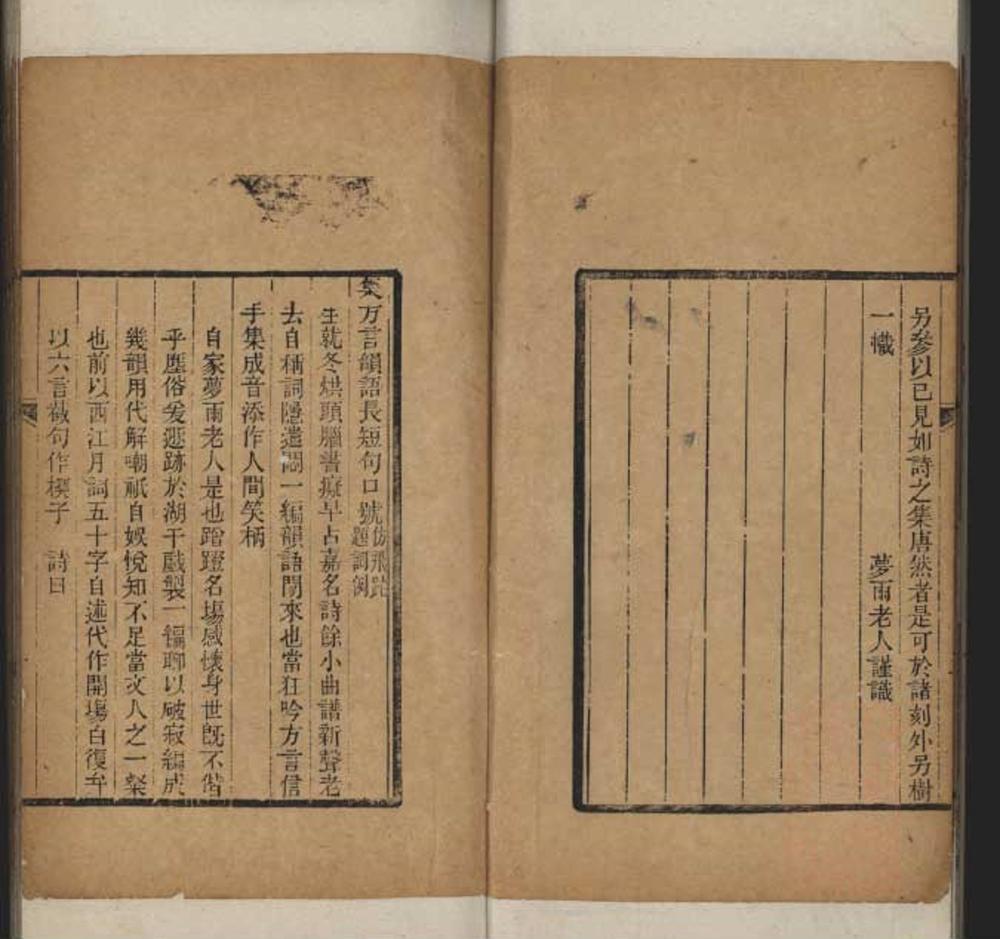 另參以已見如詩之集唐然者是可於諸刻外另樹
一幟
夢雨老人謹識
集方言韻語長短句口號
倣飛跎
題詞例
生就冬烘頭腦書癡早占嘉名詩餘小曲譜新聲老
去自稱詞隱遣悶一編韻語閒來也當狂吟方言信
手集成音添作人間笑柄
自家夢雨老人是也蹭蹬名塲感懷身世既不偕
乎塵俗爰遯跡於湖干戲製一編聊以破寂編成
幾韻用代解嘲祇自娛悅知不足當文人之一粲
也前以西江月詞五十字自述代作開塲白復弁
以六言截句作楔子　詩曰